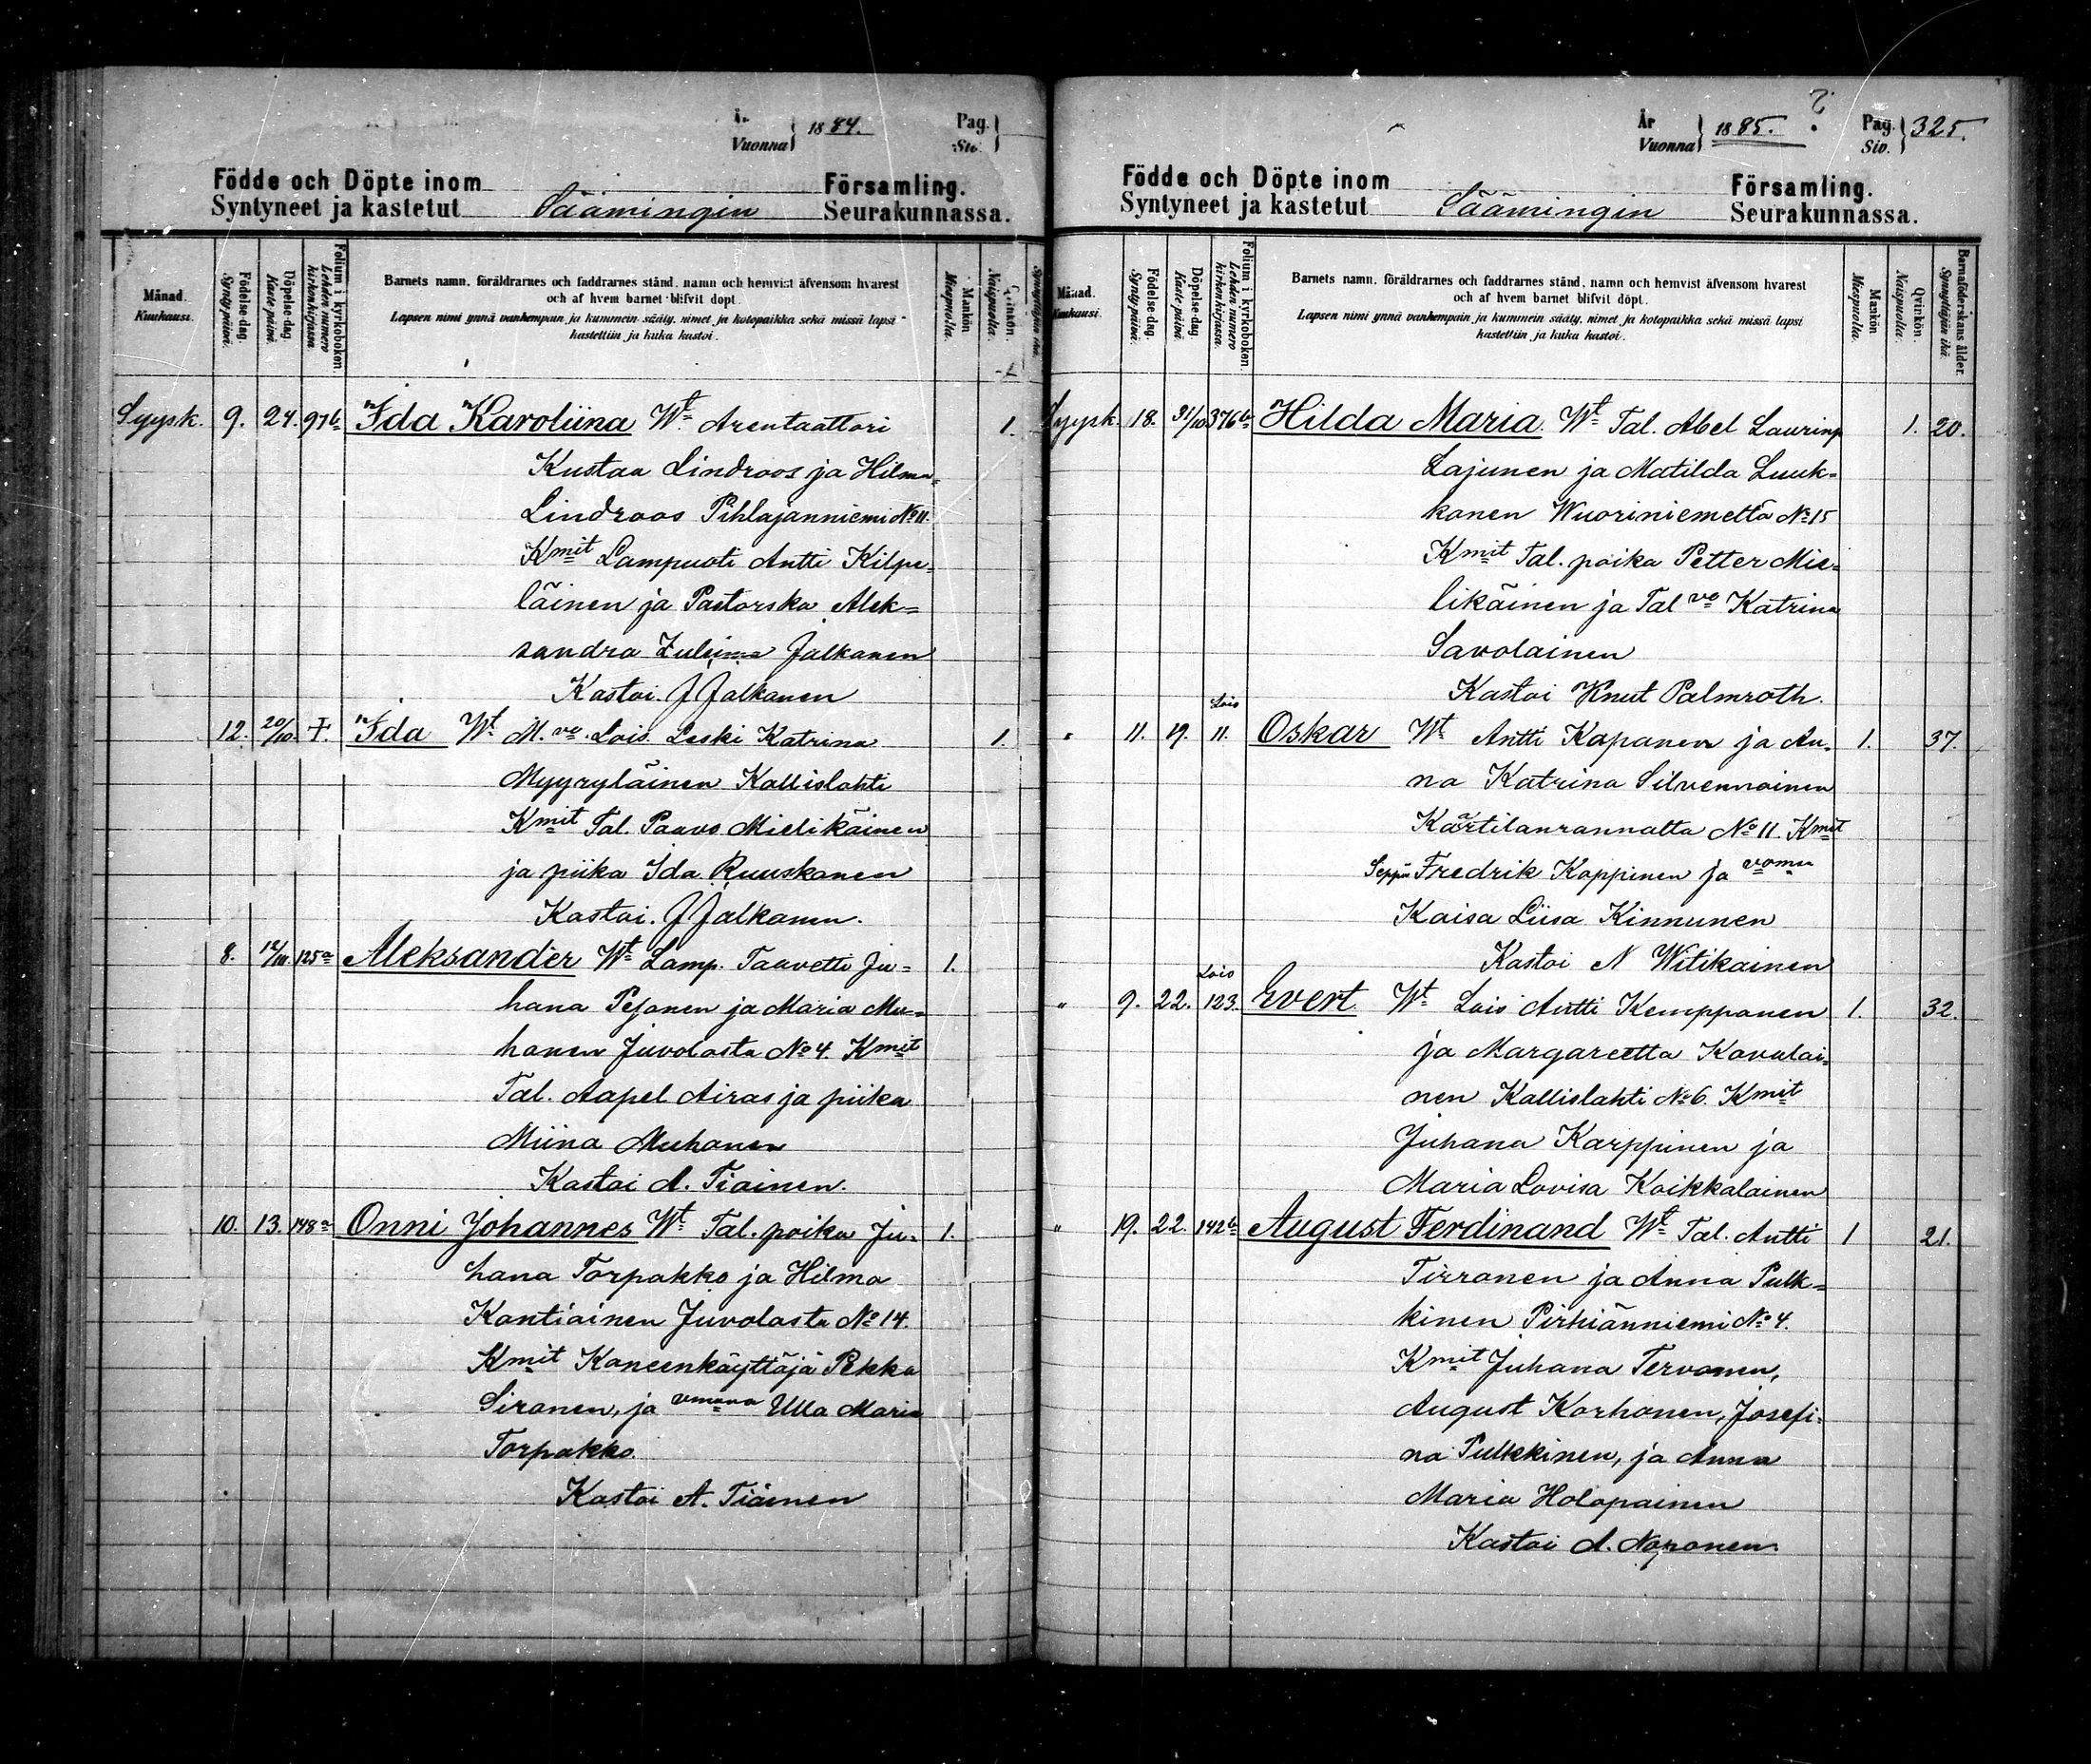 År
Vuonna } 1884.
Pag.
Siv. }
Födde och Döpte inom
Syntyneet ja kastetut Säämingin
Församling.
Seurakunnassa.
Månad.
Kuukausi.
Födelse dag.
Syntypäivä.
Döpelse dag.
Kaste päivä.
Folium i kyrkoboken.
Lehden numero kirkonkirjassa.
Barnets namn, föräldrarnes och faddrarnes stånd, namn och hemvist äfvensom hvarest
och af hvem barnet blifvit döpt.
Lapsen nimi ynnä vanhempain ja kummein sääty, nimet ja kotopaikka sekä missä lapsi
kastettiin ja kuka kastoi.
Mankön
Miespuolta.
Qvinkön.
Naispuolta.
Syysk. 9. 24. 97b Ida Karoliina Wt Arentaattori 1.
Kustaa Lindroos ja Hilma
Lindroos Pihlajanniemi No 11.
Kmit Lampuoti Antti Kilpe-
läinen ja Pastorska Alek-
sandra Zuleima Jalkanen
Kastoi J Jalkanen
12. 20/10. Ida Wt M.vo Lois. Leski Katrina 1.
Myyryläinen Kallislahti
Kmit Tal. Paavo Mielikäinen
ja piika Ida Ruuskanen
Kastoi. J Jalkanen.
8. 125a Aleksander Wt Lamp. Taavetti Ju- 1.
hana Pesonen ja Maria Mu-
honen Juvolasta No 4. Kmit
Tal. Aapel Airas ja piika
Miina Muhonen
Kastoi A. Tiainen.
10. 13. 148a Onni Johannes Wt Tal. poika Ju- 1.
hana Torpakko ja Hilma
Kontiainen Juvolasta No 14.
Kmit Koneenkäyttäjä Pekka
Siranen, ja vmona Ulla Maria
Torpakko.
Kastoi A. Tiainen
År
Vuonna } 1885. ?
Pag.
Siv. } 325.
Födde och Döpte inom
Syntyneet ja kastetut Säämingin
Församling.
Seurakunnassa.
Månad.
Kuukausi.
Födelse dag.
Syntypäivä.
Döpelse dag.
Kaste päivä.
Folium i kyrkoboken.
Lehden numero kirkonkirjassa.
Barnets namn, föräldrarnes och faddrarnes stånd, namn och hemvist äfvensom hvarest
och af hvem barnet blifvit döpt.
Lapsen nimi ynnä vanhempain ja kummein sääty, nimet ja kotopaikka sekä missä lapsi
kastettiin ja kuka kastoi.
Mankön
Miespuolta.
Qvinkön.
Naispuolta.
Barnaföderskans ålder.
Synnyttäjän ikä.
Syysk. 18. 31/10 376b Hilda Maria Wt Tal. Abel Laurinp 1. 20.
Lajunen ja Matilda Luuk-
konen Wuoriniemeltä No 15
Kmit Tal. poika Petter Mie-
likäinen ja Tal vo Katrina
Savolainen
Kastoi Knut Palmroth.
" 11. 19. Lois 11. Oskar Wt Antti Kapanen ja An- 1. 37.
na Katrina Silvennoinen
Kaartilanrannalta No 11. Kmit
Seppä Fredrik Koppinen ja vomu
Kaisa Liisa Kinnunen
Kastoi N Witikainen
" 9. 22. Lois 123. Evert Wt Lois Antti Kemppanen 1. 32.
ja Margareetta Kavalai-
nen Kallislahti No 6. Kmit
Juhana Karppinen ja
Maria Lovisa Koikkalainen
" 19. 22. 142b August Ferdinand Wt Tal. Antti 1 21.
Tirronen ja Anna Pulk-
kinen Pirhiänniemi No 4.
Kmit Juhana Tervonen,
August Korhonen, Josefi-
na Pulkkinen, ja Anna
Maria Holopainen
Kastoi A. Noponen.